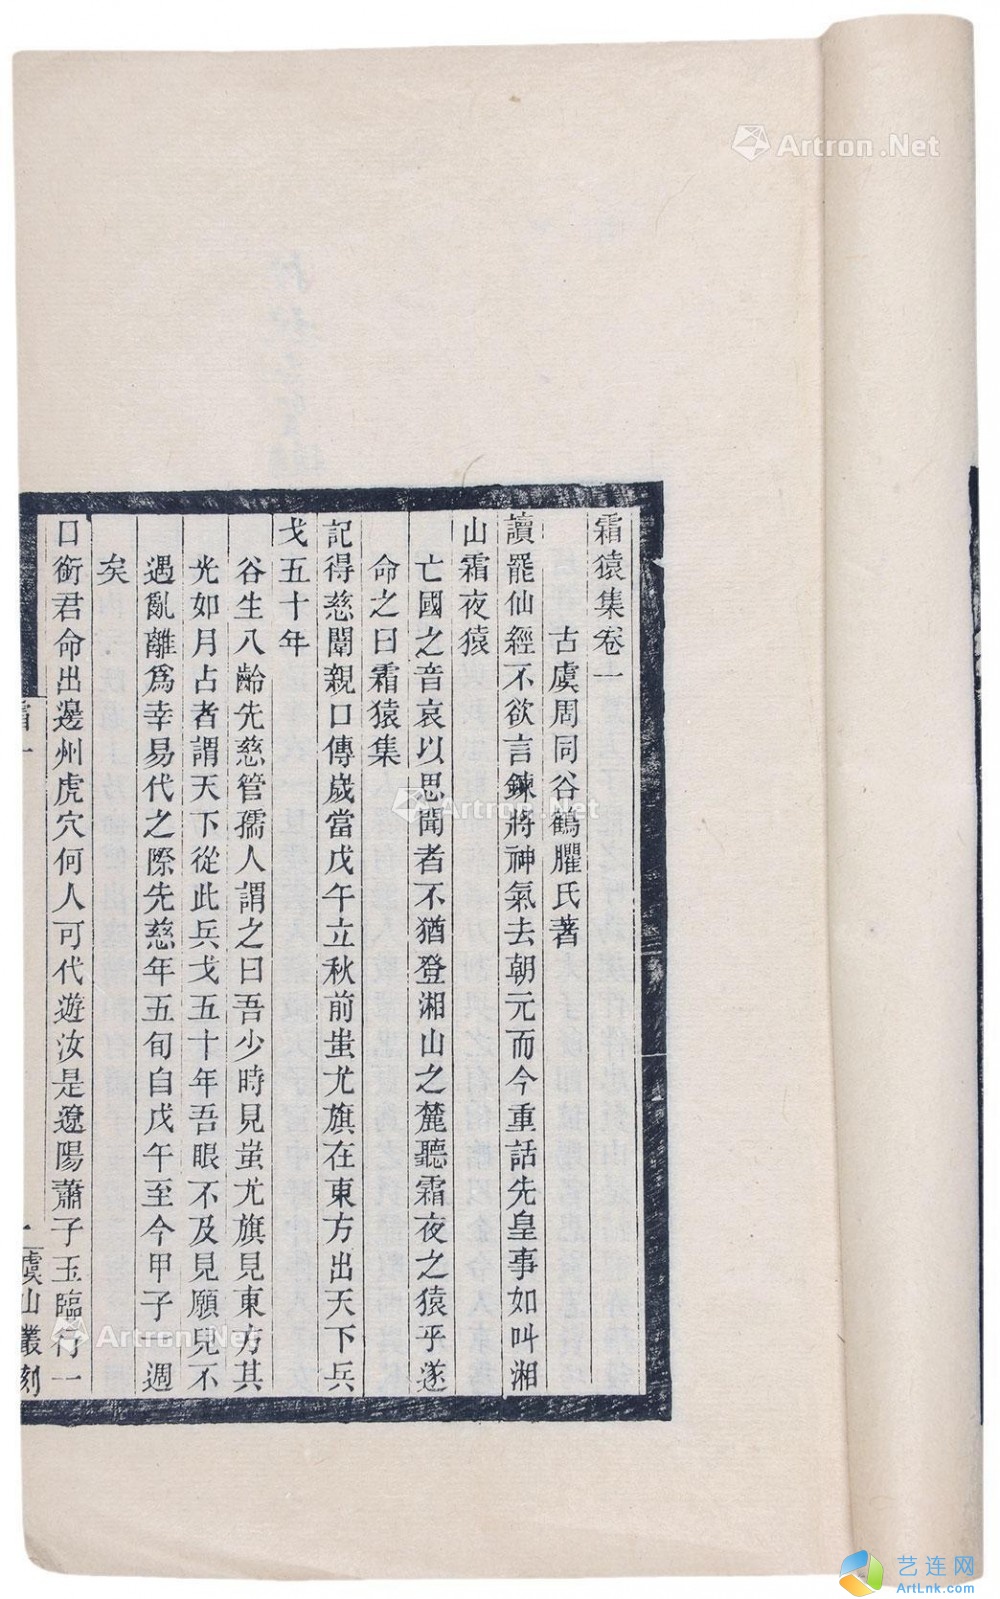 霜猿集卷一
古虞周同谷鶴臞氏著
讀罷仙經不欲言鍊將神氣去朝元而今重話先皇事如叫湘
山霜夜猿
亡國之音哀以思聞者不猶登湘山之麓聽霜夜之猿乎遂
命之曰霜猿集
記得慈闈親口傳歲當戊午立秋前蚩尤旗在東方出天下兵
戈五十年
谷生八齡先慈管孺人謂之曰吾少時見蚩尤旗見東方其
光如月占者謂天下從此兵戈五十年吾眼不及見願兒不
遇亂離爲幸易代之際先慈年五旬自戊午至今甲子一週
矣
口銜君命出邊州虎穴何人可代遊汝是遼陽蕭子玉臨行一
霜一
一
虞山叢刻
Artron.Net
Artron.Net
Artron.Net
艺连网
ArtLnk.com